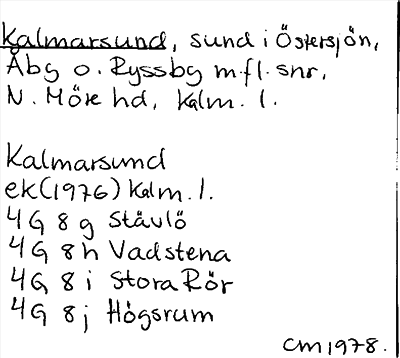 Kalmarsund, sund i Östersjön,
Åby o. Ryssby m.fl. snr,
N. Möre hd, Kalm. l.
Kalmarsund
ek (1976) Kalm. l.
4G 8g Stävlö
4G 8h Vadstena
4G 8i Stora Rör
4G 8j Högsrum
CM 1978.